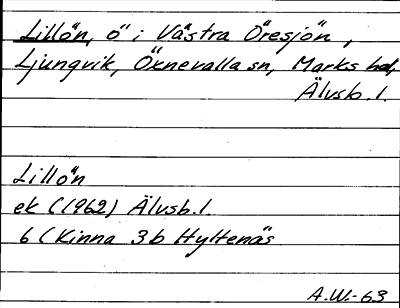 Lillön, ö i Västra Öresjön,
Ljungvik, Öxnevalla sn, Marks hd,
Älvsb. l.
Lillön
ek (1962) Älvsb. l.
6 ( Kinna 3b Hyltenäs
A.W.-63